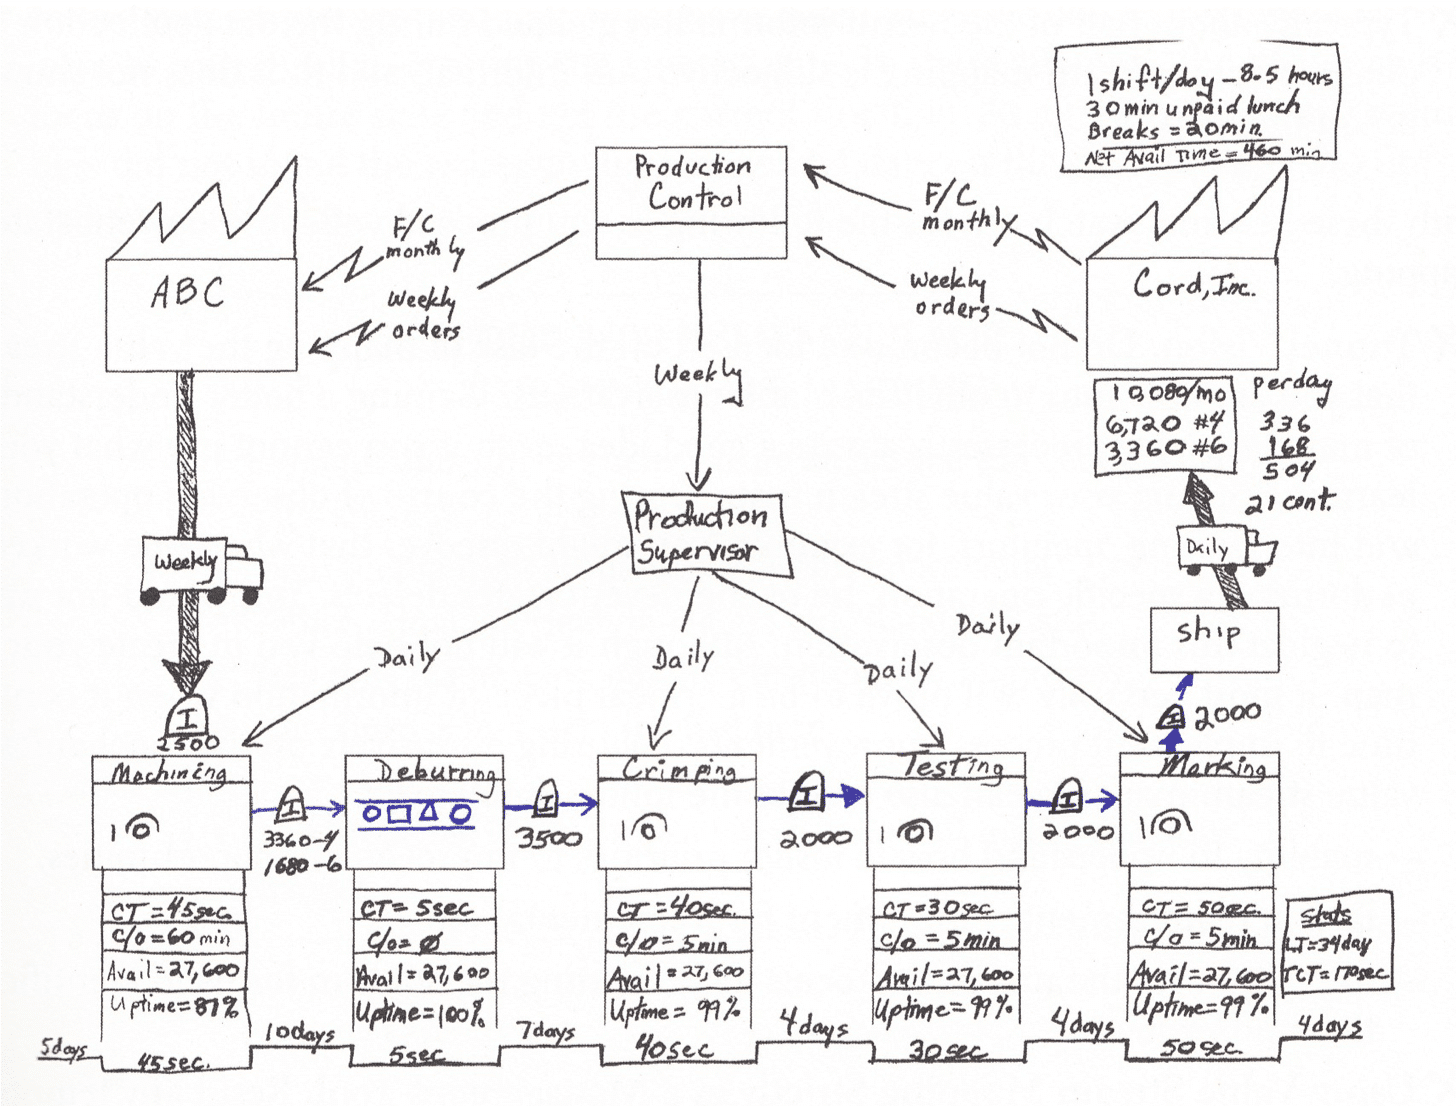 1 shift/day - 8.5 hours
30 min unpaid lunch
Breaks = 20 min
Net Avail Time = 460 min
Production
Control
F/C
monthly
Weekly
orders
ABC
F/C
monthly
Weekly
orders
Cord, Inc.
10,080/mo
6,720 #4
3,360 #6
per day
336
168
504
21 cont.
Weekly
Production
Supervisor
Weekly
Daily
Ship
Daily
Daily
Daily
Daily
I
2500
I
2000
Machining
1
I
3360-4
1680-6
Deburring
I
3500
Crimping
1
I
2000
Testing
1
I
2000
Marking
1
CT = 45 sec.
C/O = 60 min
Avail = 27,600
Uptime = 87%
CT = 5 sec
C/O = Ø
Avail = 27,600
Uptime = 100%
CT = 40 sec.
C/O = 5 min
Avail = 27,600
Uptime = 99%
CT = 30 sec
C/O = 5 min
Avail = 27,600
Uptime = 99%
CT = 50 sec.
C/O = 5 min
Avail = 27,600
Uptime = 99%
Stats
LT = 34 day
TCT = 170 sec
5 days
45 sec.
10 days
5 sec
7 days
40 sec
4 days
30 sec
4 days
50 sec.
4 days